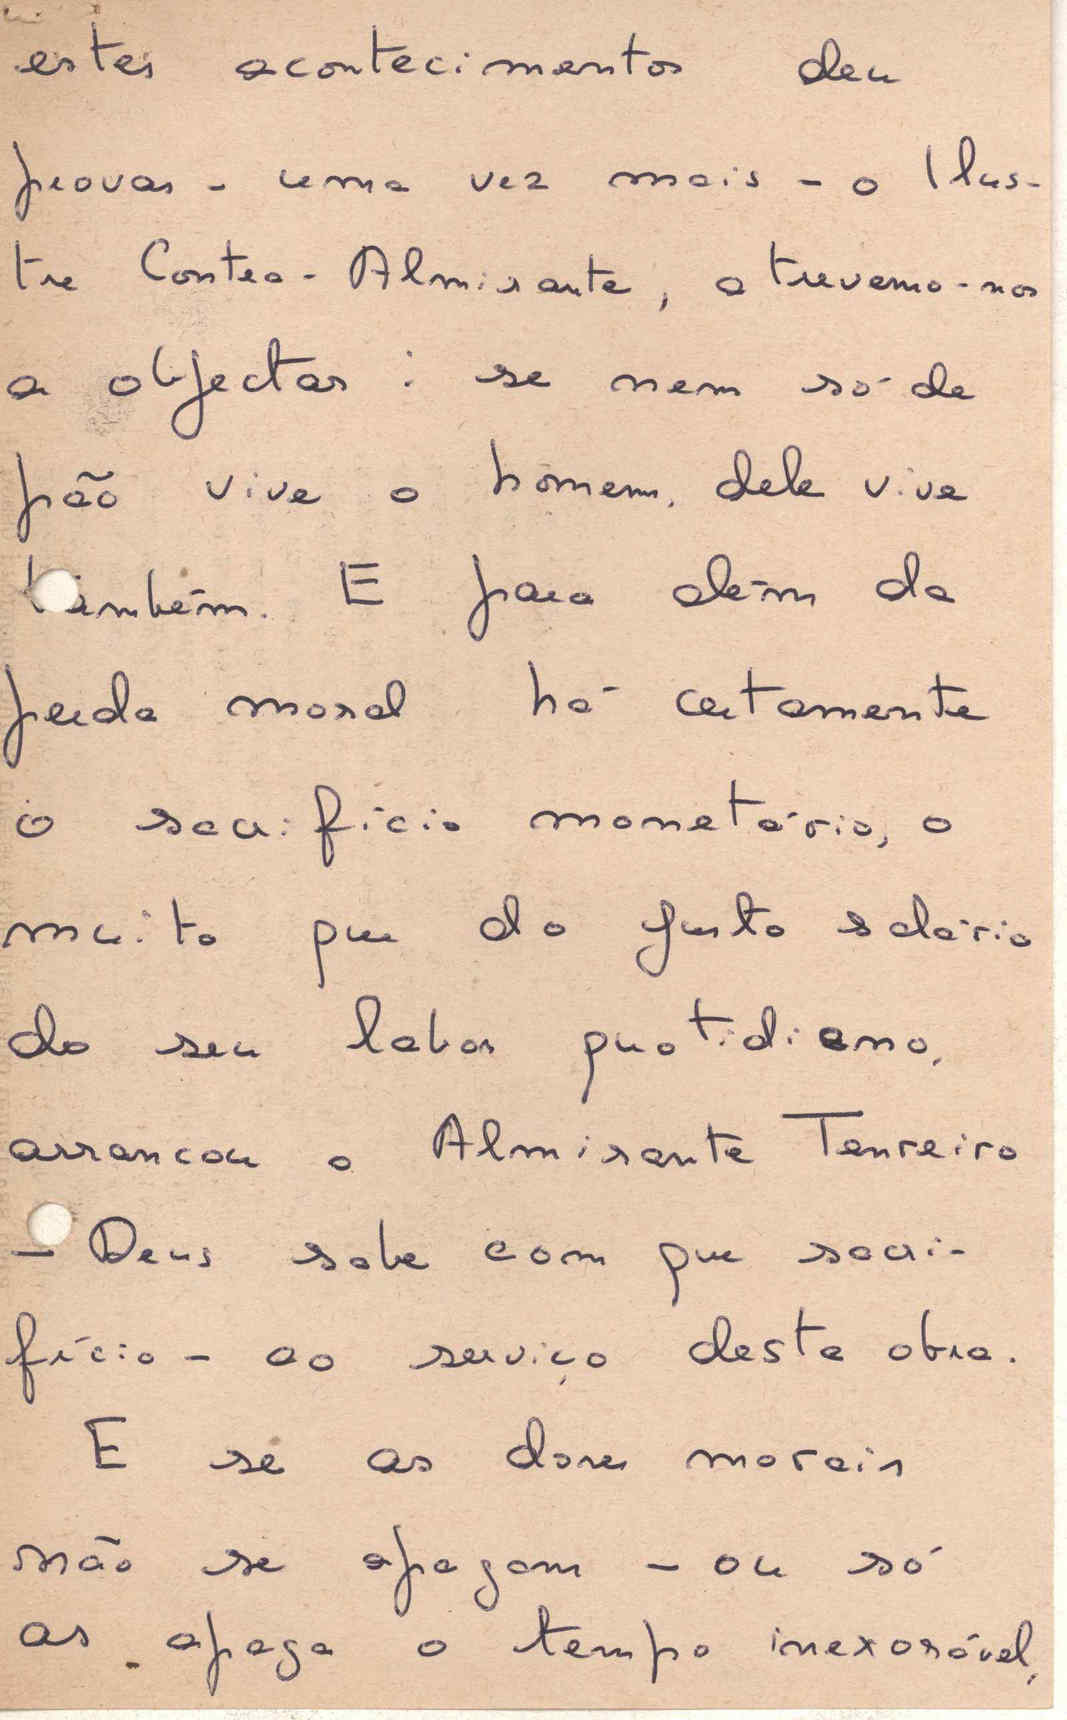 estes acontecimentos deu
provas - uma vez mais - o Ilus-
tre Contra-Almirante, atrevemo-nos
a objectar: se nem só de
pão vive o homem, dele vive
também. E para além da
perda moral há certamente
o sacrifício monetário, o
muito que do justo salário
do seu labor quotidiano,
arrancou o Almirante Tenreiro
- Deus sabe com que sacri-
fício - ao serviço desta obra.
E se as dores morais
não se apagam - ou só
as apaga o tempo inexorável,